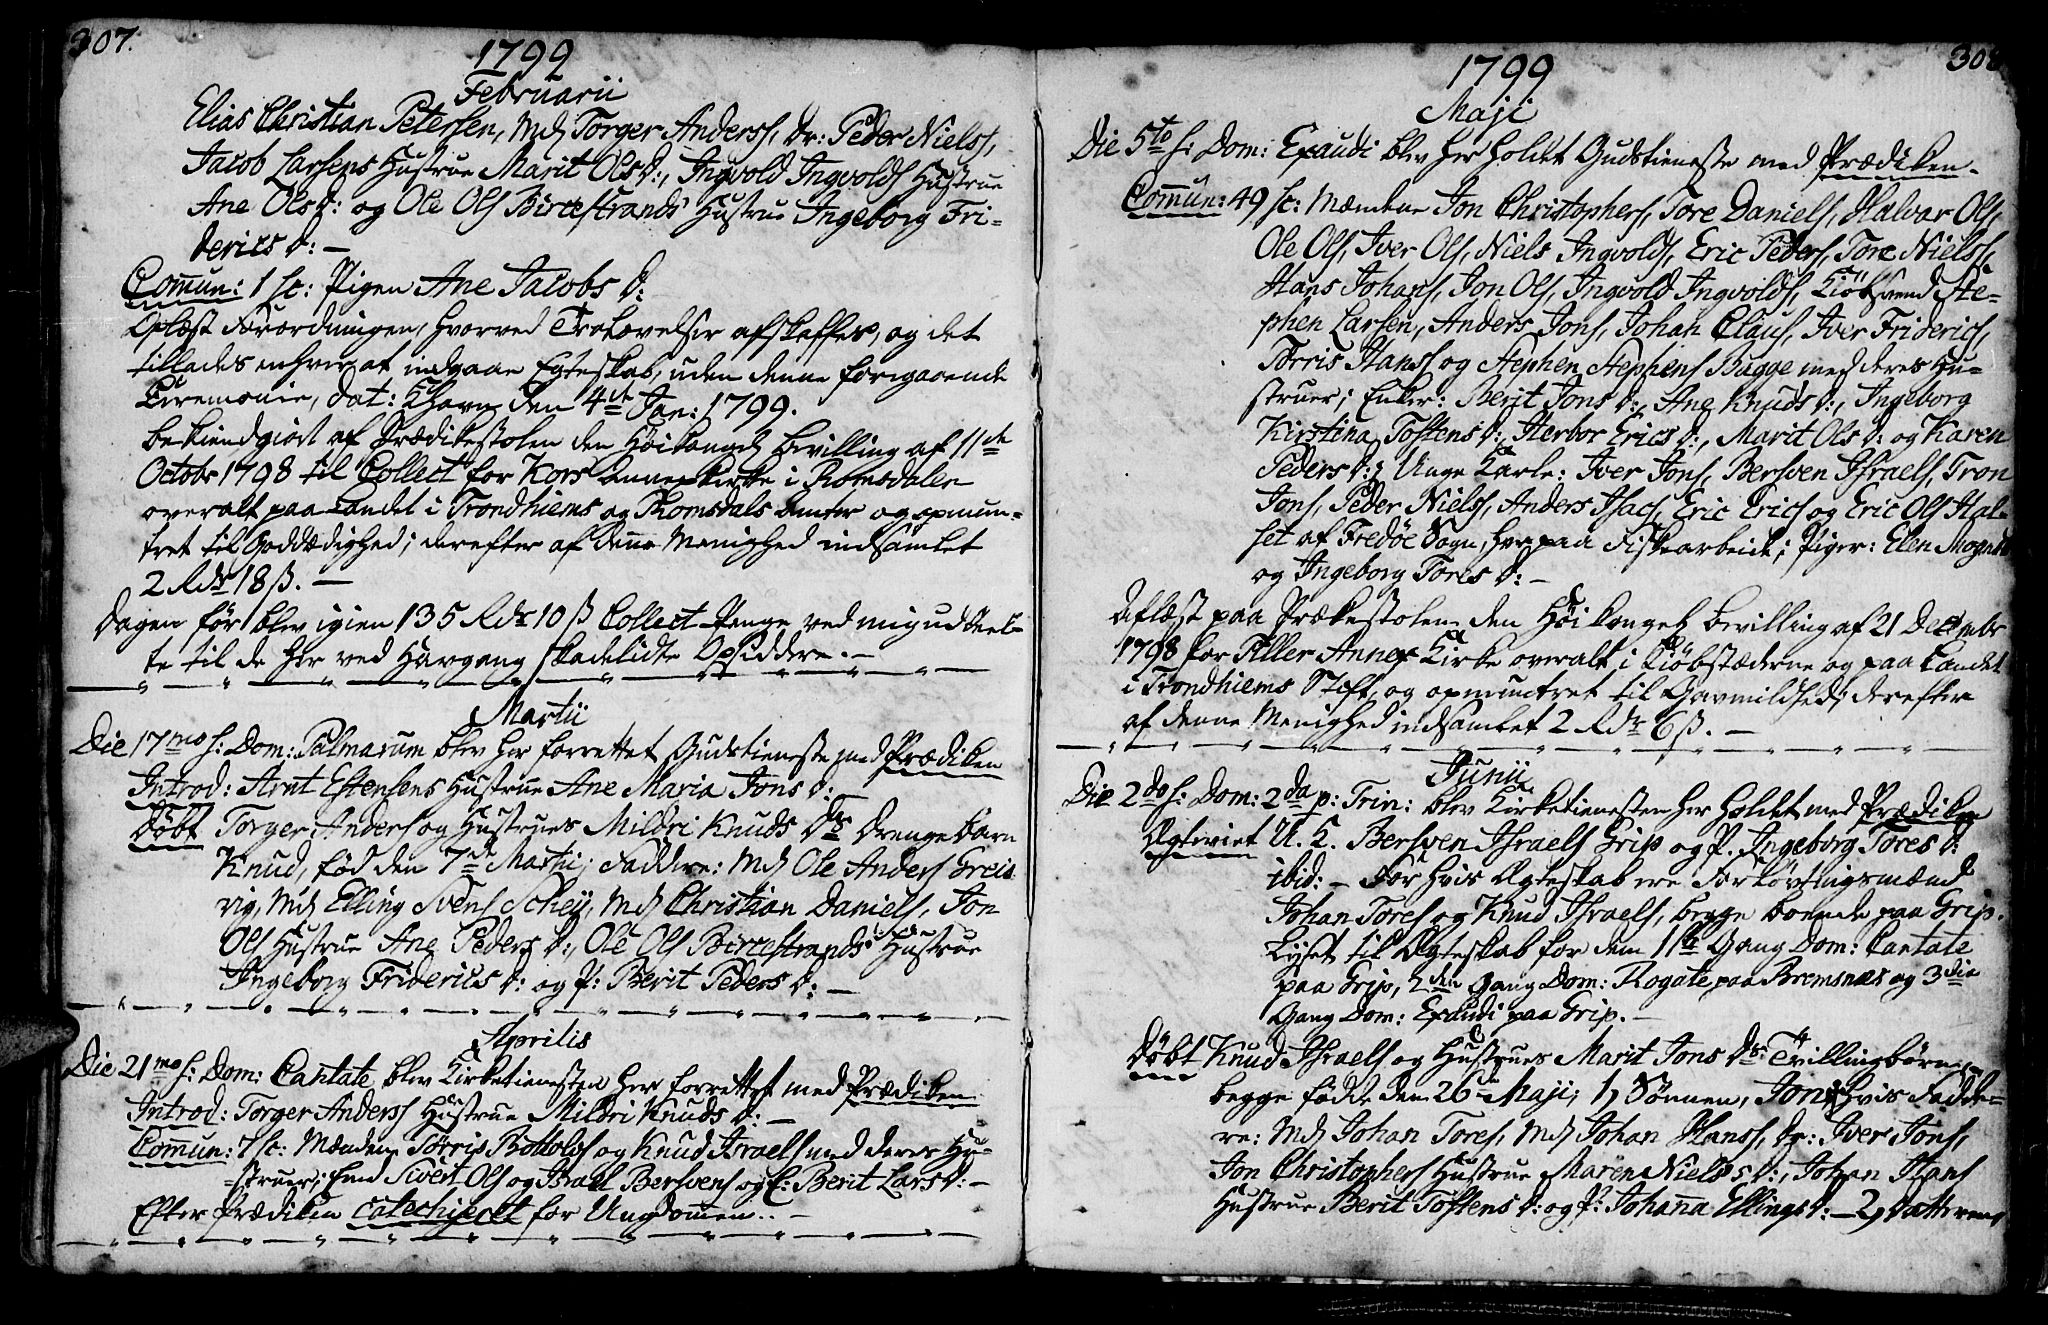 307.
1799
Februarii
Elias Christian Petersen, Md Torger Anderss, Dr: Peder Nielss,
Jacob Larsens Hustrue Marit Ols D:, Ingvold Ingvolds Hustrue
Ane Ols D: og Ole Ols Bircestrands Hustrue Ingeborg Fri-
derics D: —
Comun: 1 sc: Pigen Ane Jacobs D:
Oplæst Forordningen, hvorved Trolovelser afskaffes, og det
tillades enhver at indgaae Egteskab, uden denne foregaaende
Ceremonie, dat: Khavn den 4de Jan: 1799.
bekiendgiort af Prædikestolen den Høikongel Bevilling af 11te
Octobr 1798 til Collect for Kors Annex Kirke i Romsdalen
overalt paa Landet i Trondhiems og Romsdals Amter og opmun-
tret til Goddædighed; derefter af denne Menighed indsamlet
2 Rdr 18 ß. —
Dagen før blev igien 135 Rdr 10 ß Collect Penge ved mig uddeel-
te til de her ved Havgang skadelidte Opsiddere. —
Martii
Die 17mo s: Dom: Palmarum blev her forrettet Gudstieneste med Prædiken
Introd: Arnt Estensens Hustrue Ane Maria Jons D:
Døbt Torger Anders og Hustrues Mildri Knuds Drs Drengebarn
Knud, fød den 7de Martii; Faddere: Md Ole Anders Greis
vig, Md Elling Svens Schey, Md Christian Daniels, Jon
Ols Hustrue Ane Peders D:, Ole Ols Bircestrands Hustrue
Ingeborg Friderics D: og P: Berit Peders D: —
Aprilis
Die 21mo s: Dom: Cantate blev Kirketienesten her forrettet med Prædiken
Introd: Torger Anderss Hustrue Mildri Knuds D: —
Comun: 7 sc: Mændene Tørris Bottolfs og Knud Israels med deres Hu-
struer; Enkm Sivert Ols og Israel Bersvens og E: Berit Lars D: —
Efter Prædiken catechiseret for Ungdommen. —
308
1799
Maji
Die 5to s: Dom: Exaudi blev her holdet Gudstieneste med Prædiken.
Comun: 49 sc: Mændene Jon Christophers, Tore Daniels, Halvar Ols,
Ole Ols, Iver Ols, Niels Ingvolds, Eric Peders, Tore Nielss,
Hans Johans, Jon Ols, Ingvold Ingvolds, Kiøbsvend Ste-
phen Larsen, Anders Jons, Johan Claus, Iver Friderics,
Tørris Hanss og Stephen Stephens Bagge med deres Hu-
struer; Enker: Berit Jons D:, Ane Knuds D:, Ingeborg
Kirstina Tostens D:, Herbor Erics D:, Marit Ols D: og Karen
Peders D:; Unge Karle: Iver Jons, Bersven Israels, Tron
Jons, Peder Nielss, Anders Isacs, Eric Erics og Eric Ols Hal-
set af Fredøe Sogn, her paa Fiskearbeide; Piger: Elen Mogns D
og Ingeborg Tores D: —
Aflæst paa Prækestolen den Høikongel Bevilling af 21 Decembr
1798 for Tiller Annex Kirke overalt i Kiøbstæderne og paa Landet
i Trondhiems Stift, og opmuntret til Gavmildhed; derefter
af denne Menighed indsamlet 2 Rdr 6 ß. —
Junii
Die 2do s: Dom: 2da p: Trin: blev Kirketienesten her holdet med Prædiken
Ægteviet U. K. Bersven Israels Grip og P. Ingeborg Tores D:
ibid: — For hvis Ægteskab ere Forlovningsmænd
Johan Tores og Knud Israels, begge boende paa Grip.
Lyset til Ægteskab for dem 1ste Gang Dom: Cantate
paa Grip, 2den Gang Dom: Rogate paa Bremsnæs og 3die
Gang Dom: Exaudi paa Grip. —
Døbt Knud Israels og Hustrues Marit Jons Drs Tvillingbørn,
begge fødde den 26de Maji; 1, Sønnen, Jon, hvis Fadde-
re: Md Johan Tores, Md Johan Hanss, Dr: Iver Jons,
Jon Christophers Hustrue Maren Niels D:, Johan Hans
Hustrue Berit Tostens D: og P: Johana Ellings D: — 2, Datteren,